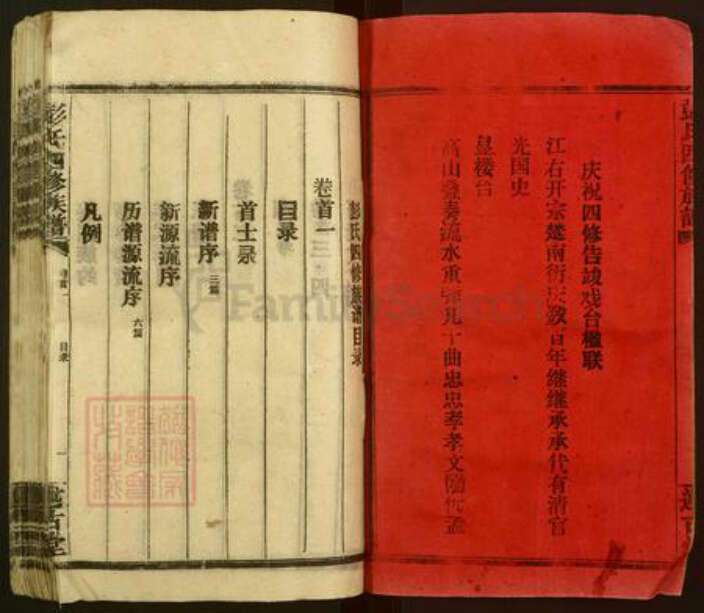 庆祝四修告竣戏台楹联
江右开宗楚南衍庆数百年继继承承代有清官
光国史
皇楼台
高山叠奏流水重弹凡十曲忠忠孝孝文随优孟
彭氏四修族谱
彭氏四修族谱目录
卷首一
目录
首士录
新谱序 三篇
新源流序
历谱源流序 六篇
凡例
彭氏四修族谱
卷首一
目录
一
FamilySearch